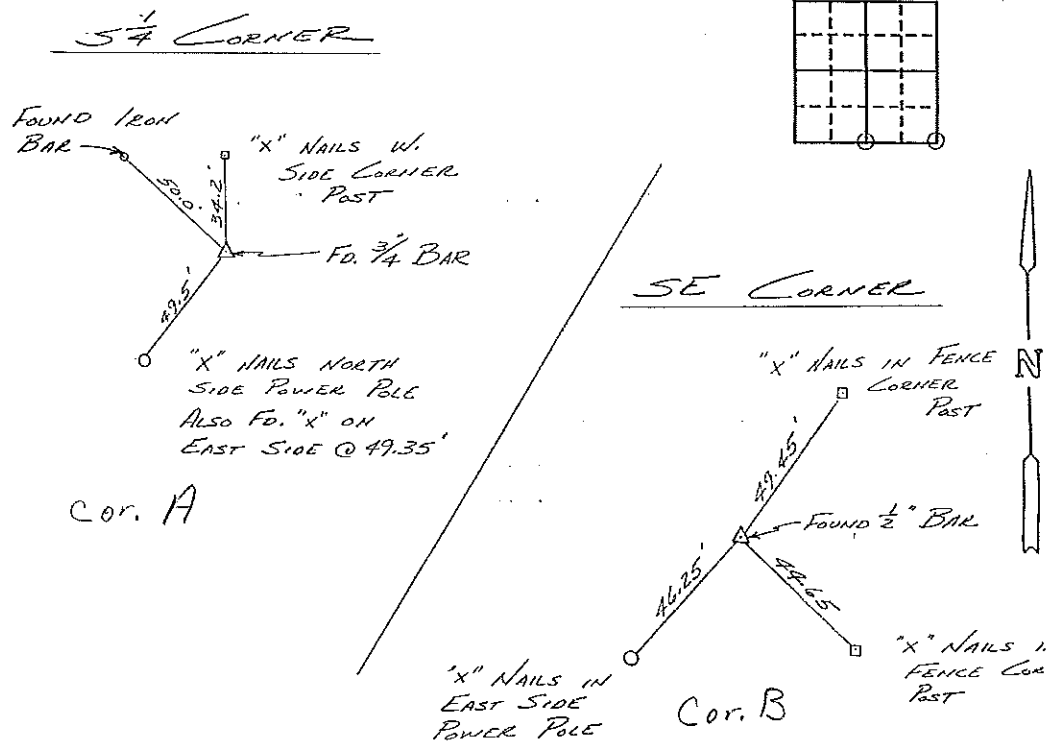 S 1/4 CORNER
FOUND IRON
BAR
"X" NAILS W.
SIDE CORNER
POST
50.0'
34.2'
FD. 3/4" BAR
49.5'
"X" NAILS NORTH
SIDE POWER POLE
ALSO FD. "X" ON
EAST SIDE @ 49.35'
Cor. A
SE CORNER
N
"X" NAILS IN FENCE
CORNER
POST
49.45'
FOUND 1/2" BAR
46.25'
44.65
"X" NAILS IN
EAST SIDE
POWER POLE
"X" NAILS
FENCE
POST
Cor. B